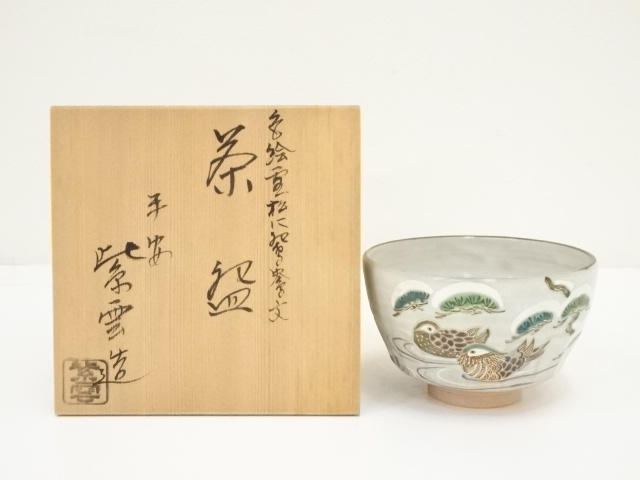 色絵雪松に鴛鴦文
茶盌
平安
紫雲造
紫雲